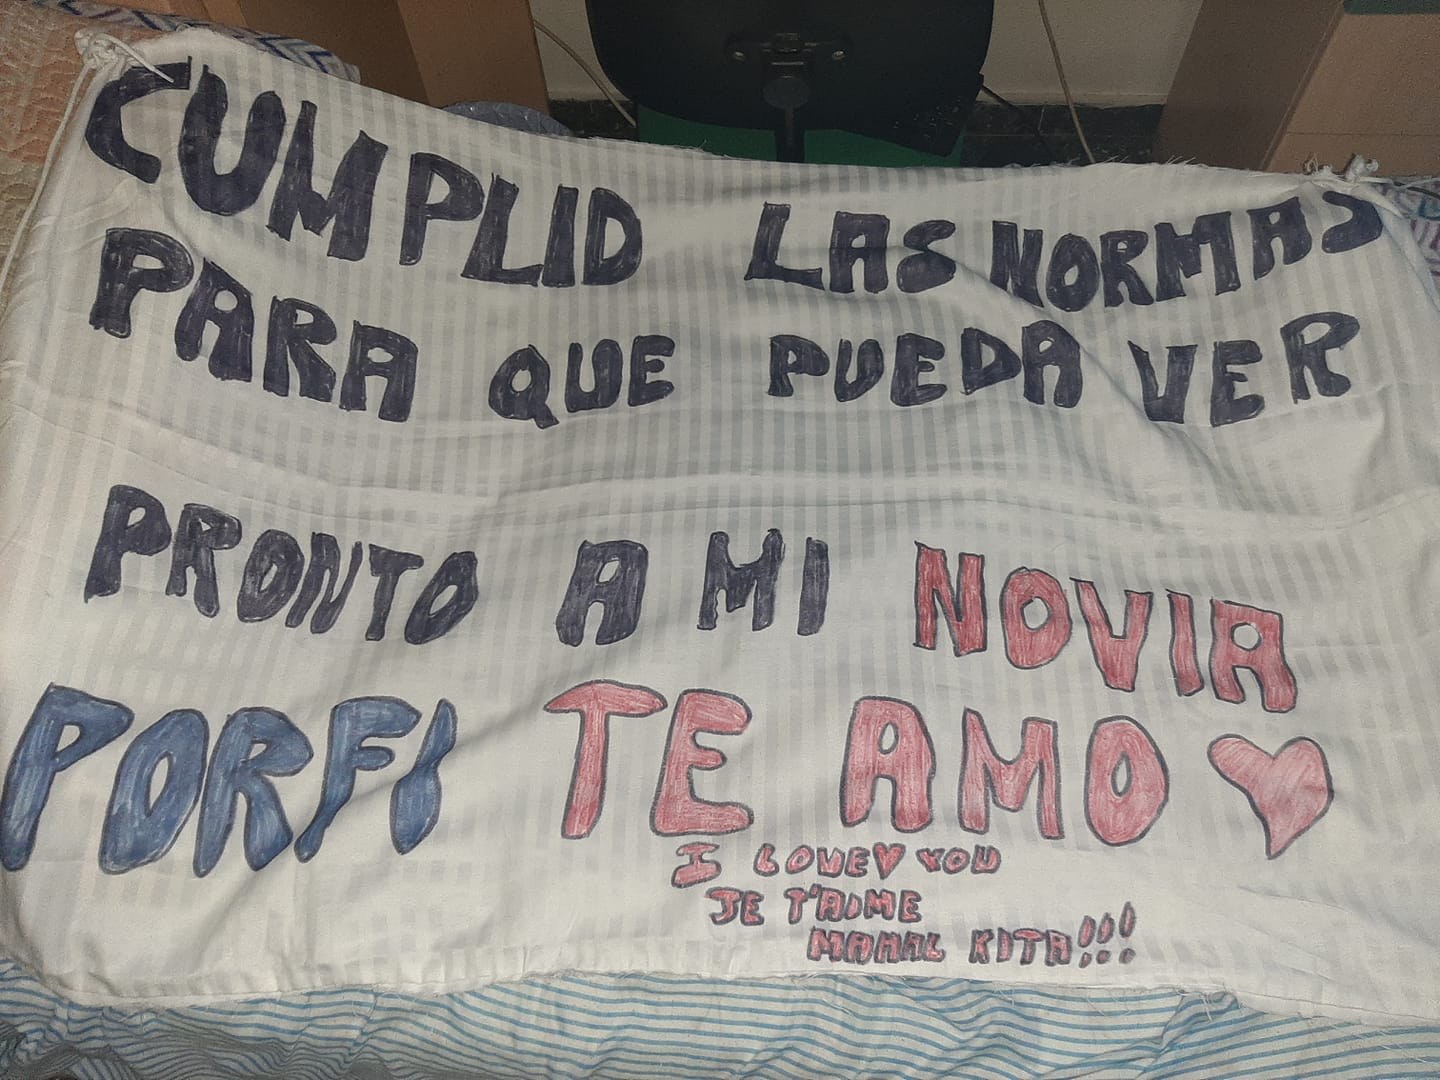 CUMPLID LAS NORMAS
PARA QUE PUEDA VER
PRONTO A MI NOVIA
PORFI TE AMO ♥
I LOVE♥ YOU
JE T'AIME
MAHAL KITA!!!